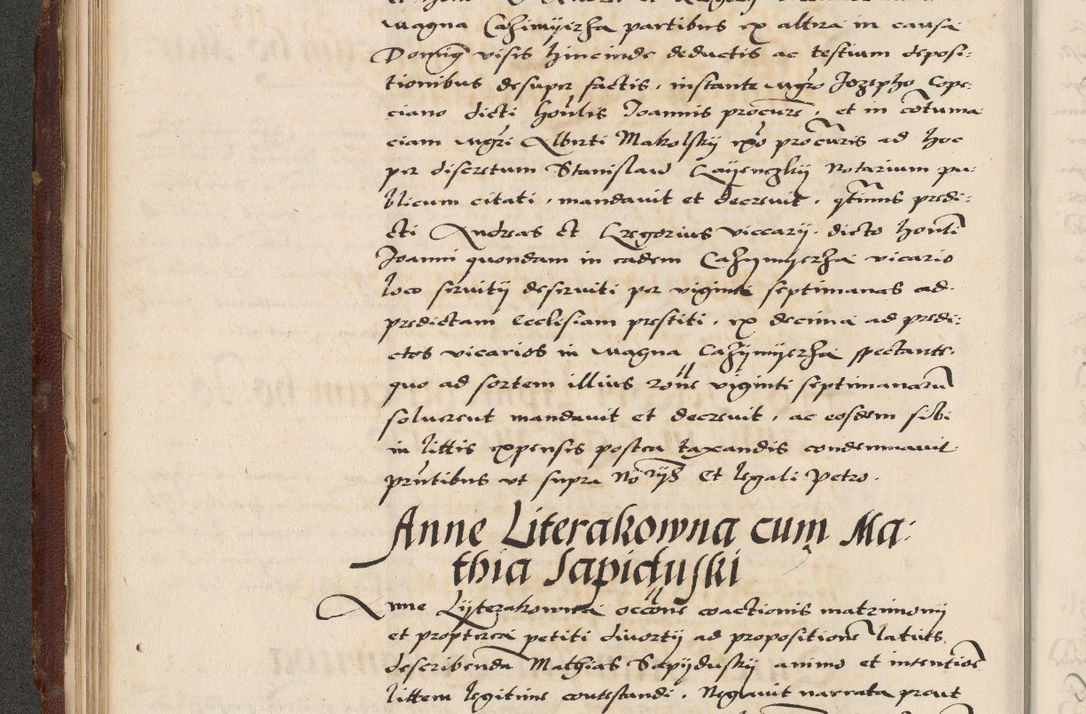 Magna Cazimijerza partibus ex altera in causa
Domini visis hincinde deductis ac testium deposi-
tionibus desuper factis, instante Mgro Jozepho Cope-
ciano dicti honlis Joannis procure, et in cotuma
ciam Mgri Alberti Makolskij procuris ad hoc
per discretum Stanislaum notarium pu-
blicum citati, mandavit et decrevit, qtinus predi-
cti Andreas et Gregorius viccarij dicto honli
Joanni quondam in eadem Cazijmijerza vicario
loco servitij deserviti per viginti septimanas ad
predictam Ecclesiam prestiti, ex decima ad predi-
ctos vicarios in Magna Cazijmijerza spectante,
quo ad sortem illius rone viginti septimanaru
solverent mandavit et decrevit, ac eosdem sibi
in littis expensis postea taxandis condemnavit
prntibus ut supra Norijs Et legali Petro.
Anne Literakowna cum Ma-
thia Sapiduski
Anne Lijterakowna occone coactionis matrimonij
et propterea petiti divortij ad propositione latius
describenda Mathias Sapijduskij animo et intentioe
littem legitime contestandi, Negavit narrata prout